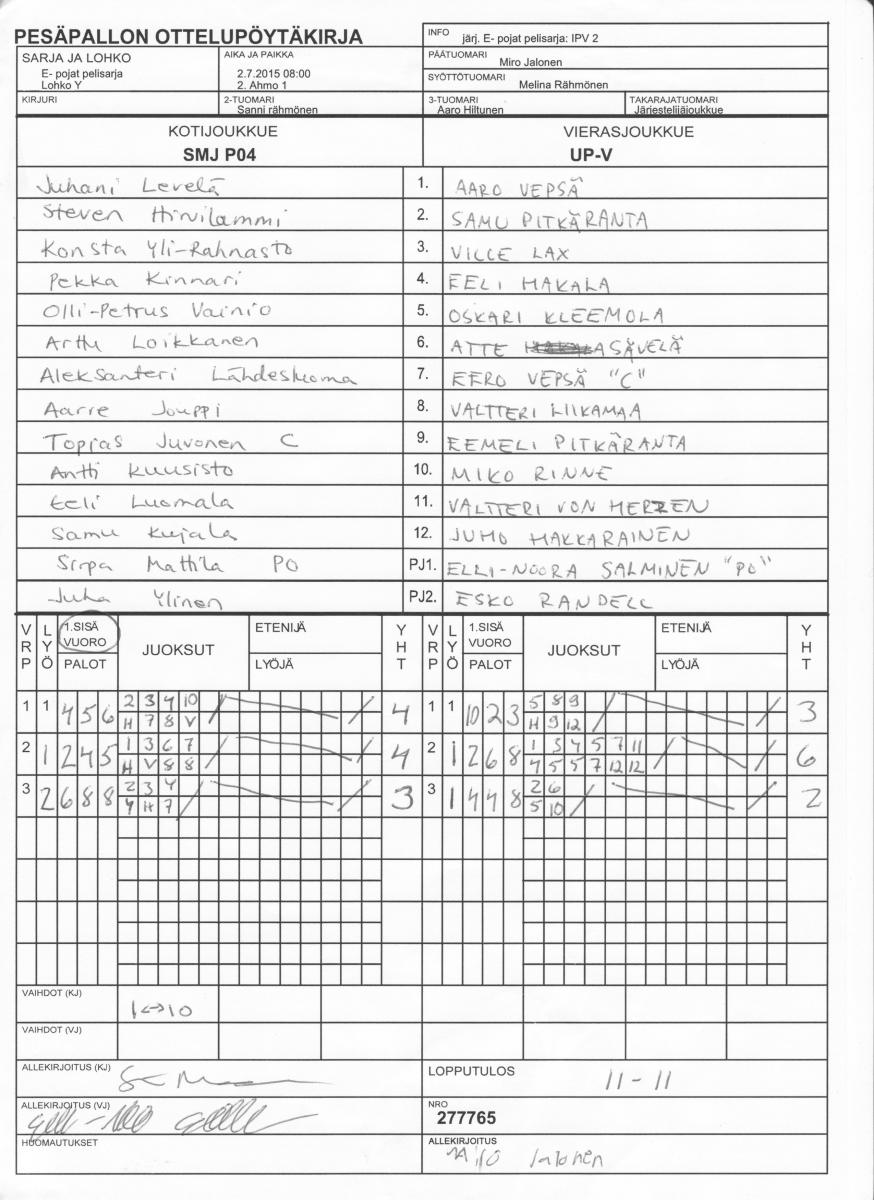 PESÄPALLON OTTELUPÖYTÄKIRJA
INFO järj. E- pojat pelisarja: IPV 2
SARJA JA LOHKO
E- pojat pelisarja
Lohko Y
AIKA JA PAIKKA
2.7.2015 08:00
2. Ahmo 1
PÄÄTUOMARI
Miro Jalonen
SYÖTTÖTUOMARI
Melina Rähmönen
KIRJURI
2-TUOMARI
Sanni rähmönen
3-TUOMARI
Aaro Hiltunen
TAKARAJATUOMARI
Järjestelijäjoukkue
KOTIJOUKKUE VIERASJOUKKUE
SMJ P04 UP-V
Juhani Levelä 1. AARO VEPSÄ
Steven Hirvilammi 2. SAMU PITKÄRANTA
Konsta Yli-Rahnasto 3. VILLE LAX
Pekka Kinnari 4. EELI MAKALA
Olli-Petrus Vainio 5. OSKARI KLEEMOLA
Arttu Loikkanen 6. ATTE ASÄVELÄ
Aleksanteri Lähdesluoma 7. EERO VEPSÄ "C"
Aarre Jouppi 8. VALTTERI LIIKAMAA
Topias Juvonen C 9. EEMELI PITKÄRANTA
Antti Kuusisto 10. MIKO RINNE
Eeli Luomala 11. VALTTERI VON HERTZEN
Samu Kujala 12. JUHO HAKKARAINEN
Sirpa Mattila PO PJ1. ELLI-NOORA SALMINEN "PO"
Juha Ylinen PJ2. ESKO RANDELL
VRP LYÖ 1.SISÄ VUORO PALOT JUOKSUT ETENIJÄ LYÖJÄ YHT VRP LYÖ 1.SISÄ VUORO PALOT JUOKSUT ETENIJÄ LYÖJÄ YHT
1 1 4 5 6 2 3 4 10 4 1 1 10 2 3 5 8 9 3
H 7 8 V H 9 12
2 1 2 4 5 1 3 6 7 4 2 1 2 6 8 1 3 4 5 7 11 6
H V 8 8 4 5 5 7 12 12
3 2 6 8 8 2 3 4 3 3 1 4 4 8 2 6 2
4 H 7 5 10
VAIHDOT (KJ)
1<->10
VAIHDOT (VJ)
ALLEKIRJOITUS (KJ)
LOPPUTULOS 11-11
ALLEKIRJOITUS (VJ)
NRO
277765
HUOMAUTUKSET
ALLEKIRJOITUS
Miro Jalonen